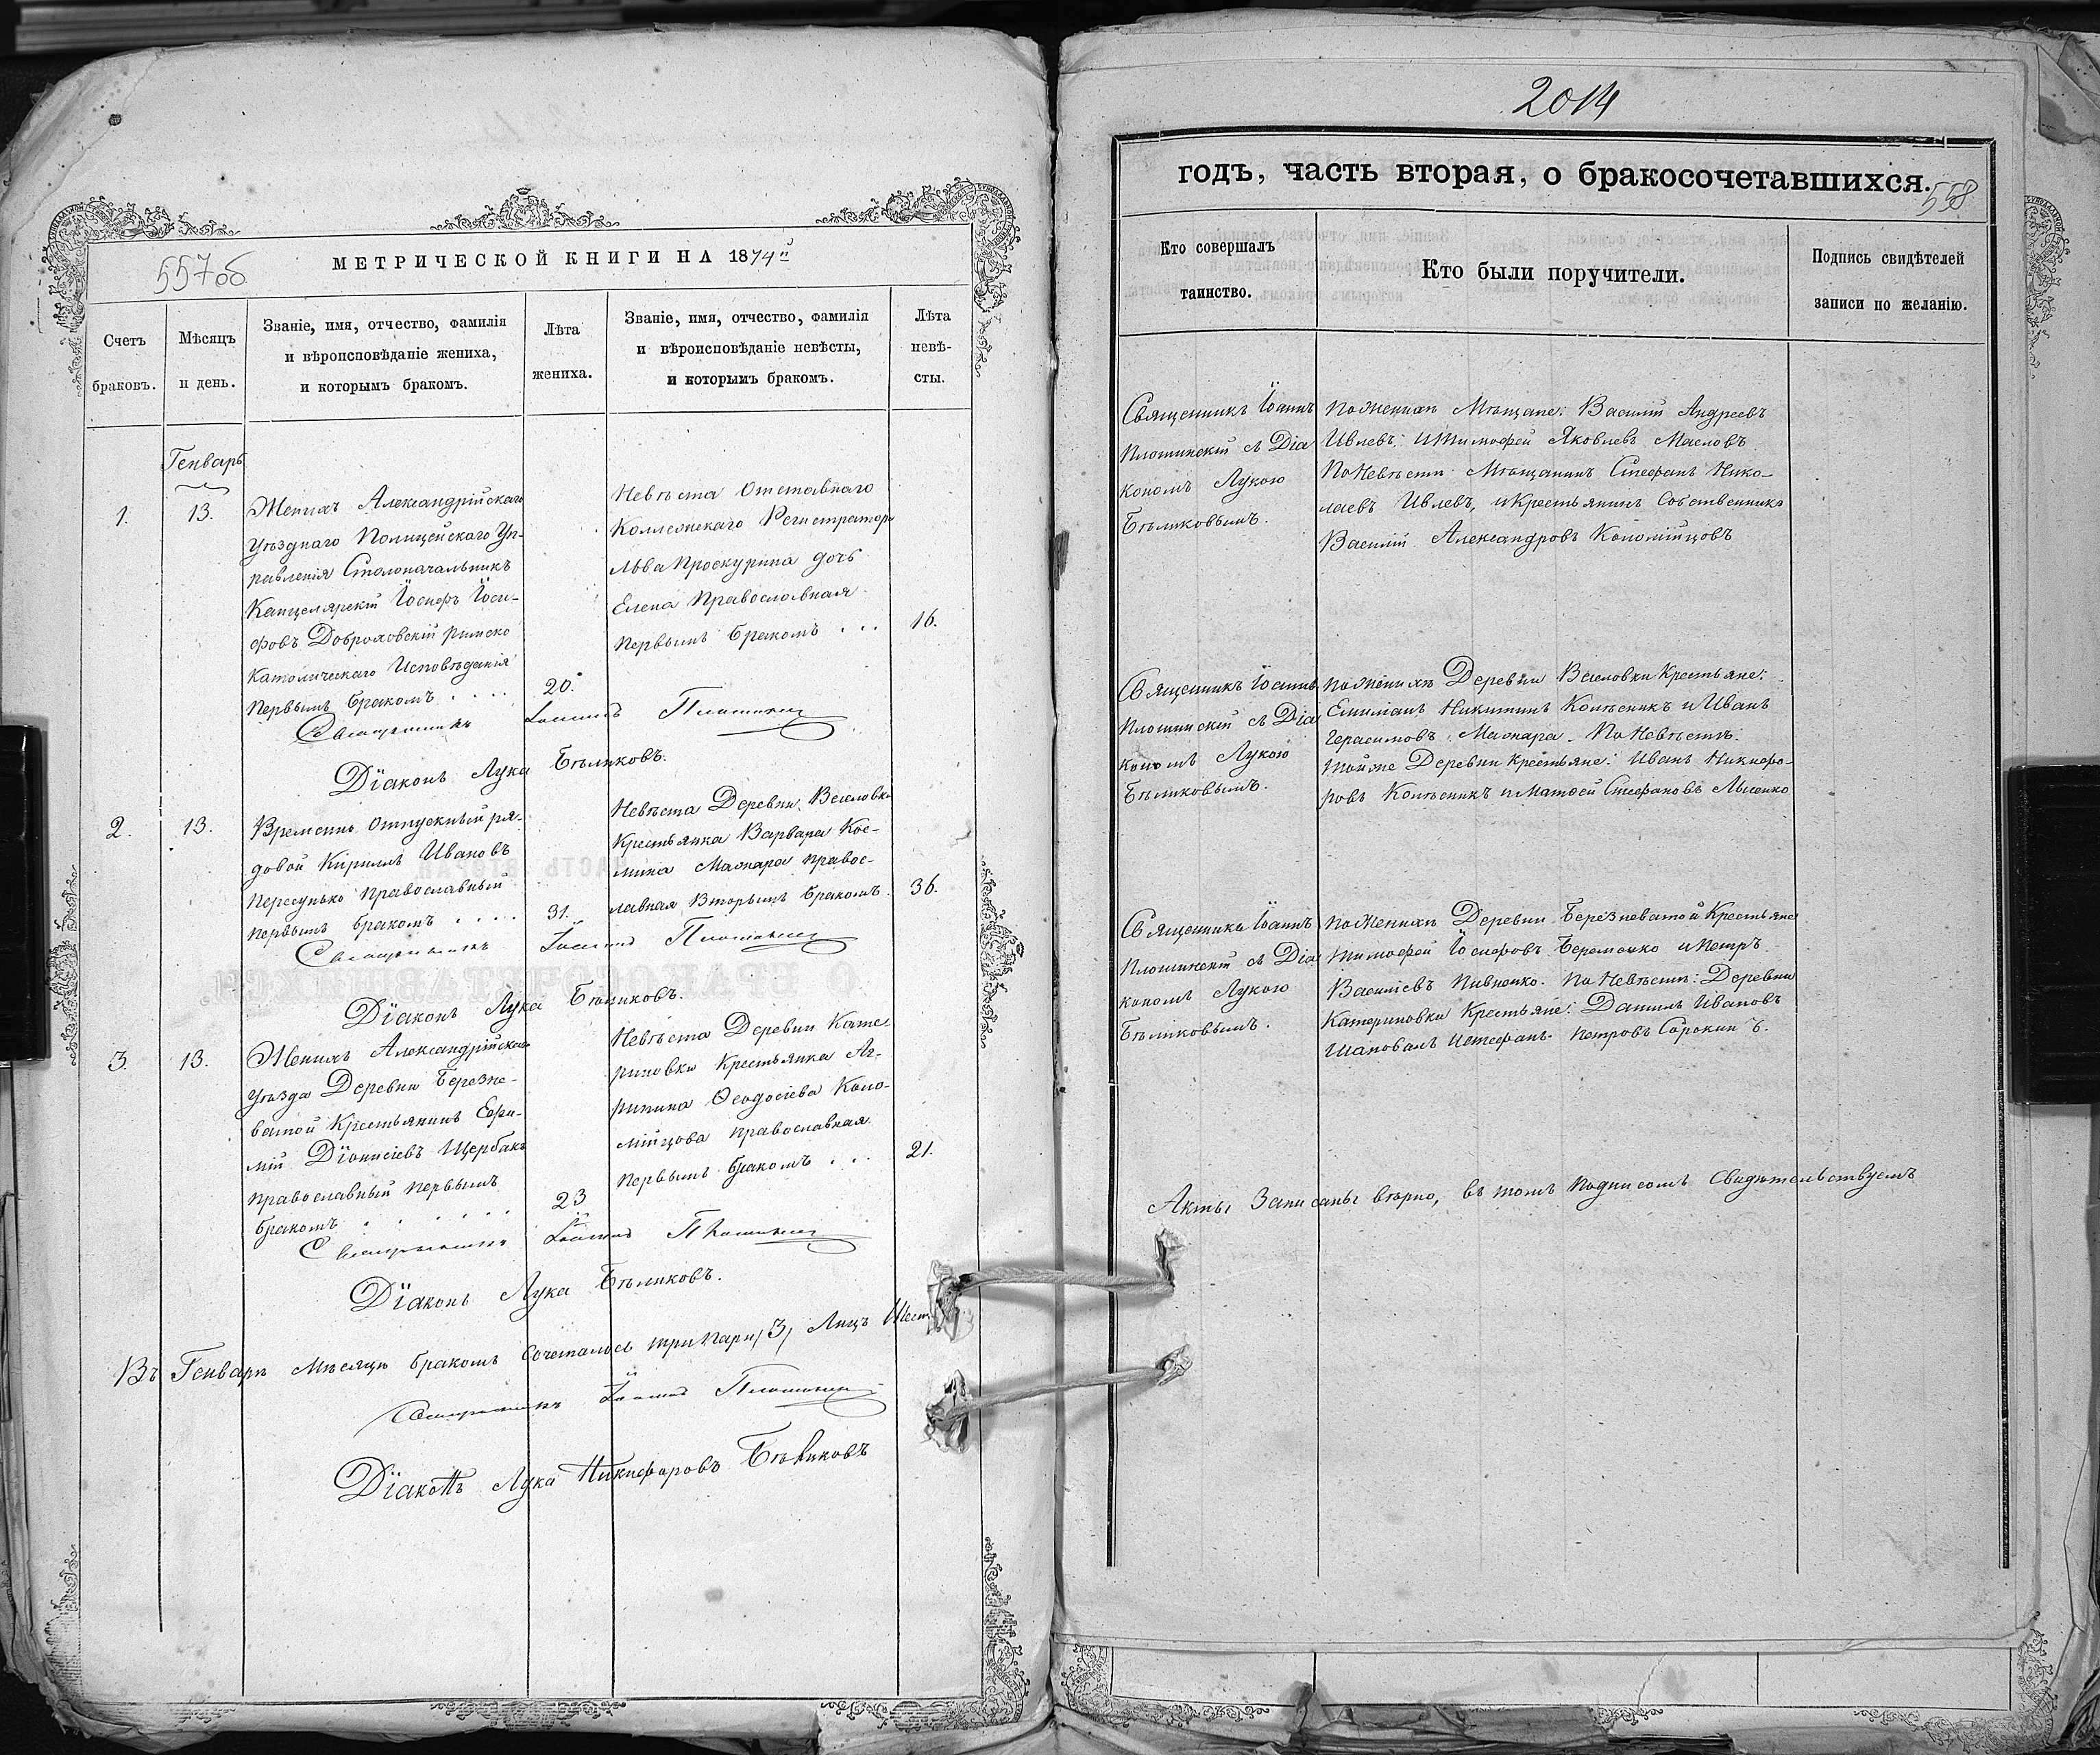 557об
МЕТРИЧЕСКОЙ КНИГИ НА 1874й
Счетъ
браковъ.
Мѣсяцъ
и день.
Званіе, имя, отчество, фамилія
и вѣроисповѣданіе жениха,
и которымъ бракомъ.
Лѣта
жениха.
Званіе, имя, отчество, фамилія
и вѣроисповѣданіе невѣсты,
и которымъ бракомъ.
Лѣта
невѣ-
сты.
Генварь
1.
13.
Женихъ Александрійскаго
Уѣзднаго Полицейскаго Уп-
равленія Столоначальникъ
Канцелярскій Іосифъ Іоси-
фовъ Доброховскій римско
католическаго Исповѣданія
первымъ бракомъ . . . .
20.
Невѣста Отставнаго
Коллежскаго Регистратора
Льва Проскурина дочь
Елена Православная
первымъ бракомъ . . .
16.
Священникъ Іоаннъ Плошинскій
Діаконъ Лука Бѣликовъ.
2.
13.
Временно отпускный ря-
довой Кириллъ Ивановъ
Пересунько Православный
первымъ бракомъ . . . .
31.
Невѣста Деревни Веселовки
Крестьянка Варвара Кос-
мина Мажара правос-
лавная Вторымъ бракомъ.
36.
Священникъ Іоаннъ Плошинскій
Діаконъ Лука Бѣликовъ.
3.
13.
Женихъ Александрійскаго
уѣзда Деревни Березне-
ватой Крестьянинъ Ефи-
мій Діонисіевъ Щербакъ
православный первымъ
бракомъ . . . . . .
23
Невѣста Деревни Кате-
риновки Крестьянка Аг-
рипина Ѳеодосіева Коло-
мійцова православная
первымъ бракомъ . . .
21.
Священникъ Іоаннъ Плошинскій
Діаконъ Лука Бѣликовъ.
Въ Генварѣ Мѣсяцѣ бракомъ сочеталось три пары /3/ Лицъ Шест
Священникъ Іоаннъ Плошинскій
Діаконъ Лука Никифоровъ Бѣликовъ
2014
годъ, часть вторая, о бракосочетавшихся.
558
Кто совершалъ
таинство.
Кто были поручители.
Подпись свидѣтелей
записи по желанію.
Священникъ Іоаннъ
Плошинскій съ Діа
кономъ Лукою
Бѣликовымъ.
По Женихѣ Мѣщане: Василій Андреевъ
Ивлевъ; и Тимофей Яковлевъ Масловъ
По Невѣстѣ Мѣщанинъ Стефанъ Нико-
лаевъ Ивлевъ, и Крестьянинъ Собственникъ
Василій Александровъ Коломійцовъ
Священникъ Іоаннъ
Плошинскій съ Діа
кономъ Лукою
Бѣликовымъ.
По Женихѣ Деревни Веселовки Крестьяне:
Емиліанъ Никитинъ Колѣсникъ и Иванъ
Герасимовъ Мажара. По Невѣстѣ:
тойже Деревни Крестьяне: Иванъ Никифо-
ровъ Колѣсникъ и Матѳей Стефановъ Лысенко
Священникъ Іоаннъ
Плошинскій съ Діа
кономъ Лукою
Бѣликовымъ.
По Женихѣ Деревни Березневатой Крестьяне
Тимофей Іосифовъ Беременко и Петръ
Василіевъ Пивненко. По Невѣстѣ: Деревни
Катериновки Крестьяне: Даніилъ Ивановъ
Шаповалъ и Стефанъ Петровъ Сорокинъ.
Акты Записаны вѣрно, въ томъ подписомъ Свидѣтельствуемъ